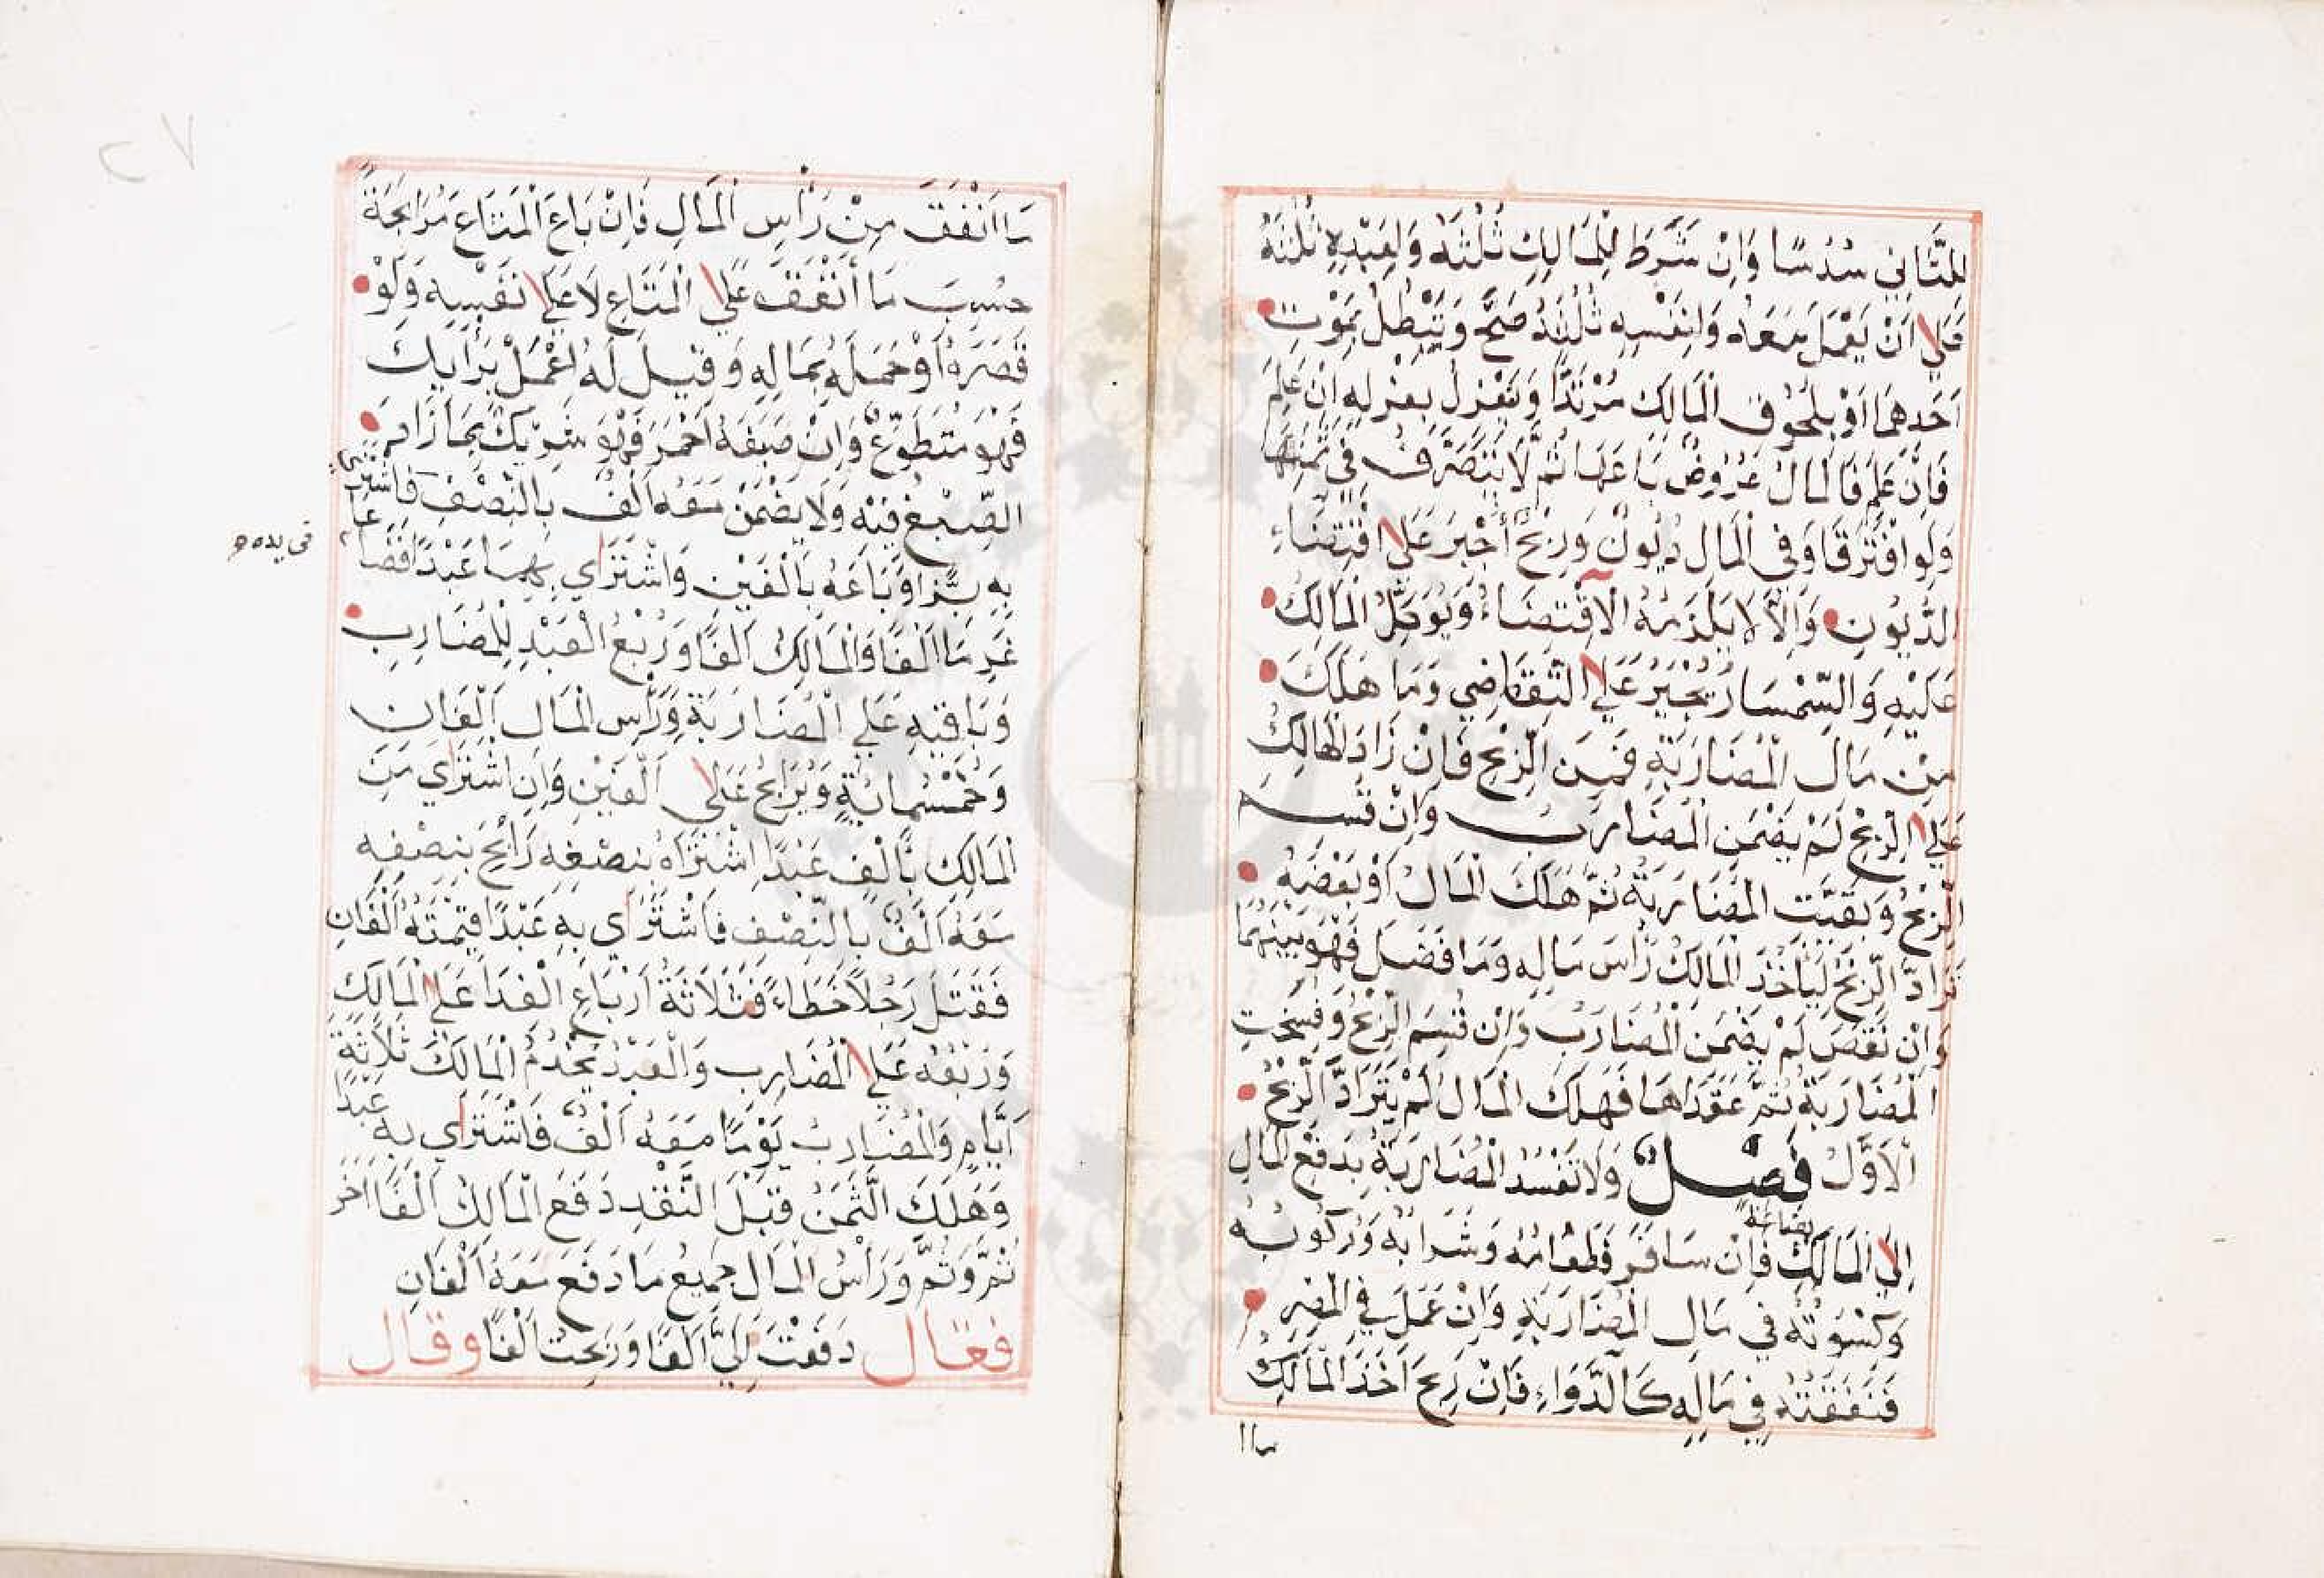 لِلثَّانِي سُدُسًا وَاِنْ شَرَطَ لِلْمَالِكِ ثُلُثَهُ وَلِعَبْدِهِ ثُلُثَهُ
عَلى اَنْ يَعْمَلَ مَعَهُ وَلِنَفْسِهِ ثُلُثَهُ صَحَّ وَتَبْطُلُ بِمَوْتِ
اَحَدِهِمَا اَوْ بِلُحُوقِ الْمَالِكِ مُرْتَدًّا وَيَنْعَزِلُ بِعَزْلِهِ اِنْ عَلِمَ
فَاِنْ عَلِمَ فَالْمَالُ عُرُوضٌ بَاعَهَا ثُمَّ لَا يَتَصَرَّفُ فِي ثَمَنِهَا
وَلَوِ افْتَرَقَا وَفِي الْمَالِ دُيُونٌ وَرِبْحٌ اُجْبِرَ عَلَى اقْتِضَاءِ
الدُّيُونِ وَاِلَّا لَا يَلْزَمُهُ الْاِقْتِضَاءُ وَيُوَكِّلُ الْمَالِكَ
عَلَيْهِ وَالسِّمْسَارُ يُجْبَرُ عَلَى التَّقَاضِي وَمَا هَلَكَ
مِنْ مَالِ الْمُضَارَبَةِ فَمِنَ الرِّبْحِ فَاِنْ زَادَ الْهَالِكُ
عَلَى الرِّبْحِ لَمْ يَضْمَنِ الْمُضَارِبُ وَاِنْ قُسِمَ
الرِّبْحُ وَبَقِيَتِ الْمُضَارَبَةُ ثُمَّ هَلَكَ الْمَالُ اَوْ بَعْضُهُ
تَرَادَّ الرِّبْحَ لِيَأْخُذَ الْمَالِكُ رَأْسَ مَالِهِ وَمَا فَضَلَ فَهُوَ بَيْنَهُمَا
وَاِنْ نَقَصَ لَمْ يَضْمَنِ الْمُضَارِبُ وَاِنْ قُسِمَ الرِّبْحُ وَفُسِخَتِ
الْمُضَارَبَةُ ثُمَّ عَقَدَاهَا فَهَلَكَ الْمَالُ لَمْ يَتَرَادَّ الرِّبْحُ
الْاَوَّلُ فَصْلٌ وَلَا تَفْسُدُ الْمُضَارَبَةُ بِدَفْعِ الْمَالِ
اِلَى الْمَالِكِ بضاعةً فَاِنْ سَافَرَ فَطَعَامُهُ وَشَرَابُهُ وَرُكُوبُهُ
وَكِسْوَتُهُ فِي مَالِ الْمُضَارَبَةِ وَاِنْ عَمِلَ فِي الْمِصْرِ
فَنَفَقَتُهُ فِي مَالِهِ كَالدَّوَاءِ فَاِنْ رَبِحَ اَخَذَ الْمَالِكُ
ماا
٢٧
مَا اَنْفَقَ مِنْ رَأْسِ الْمَالِ فَاِنْ بَاعَ الْمَتَاعَ مُرَابَحَةً
حُسِبَ مَا اَنْفَقَ عَلَى الْمَتَاعِ لَا عَلى نَفْسِهِ وَلَوْ
قَصَرَهُ اَوْ حَمَلَهُ بِمَالِهِ وَقِيلَ لَهُ اعْمَلْ بِرَأْيِكَ
فَهُوَ مُتَطَوِّعٌ وَاِنْ صَبَغَهُ اَحْمَرَ فَهُوَ شَرِيكٌ بِمَا زَادَ
الصِّبْغُ فِيْهِ وَلَا يَضْمَنُ مَعَهُ اَلْفٌ بِالنِّصْفِ فَاشْتَرَى
بِهِ بَزًّا وَبَاعَهُ بِاَلْفَيْنِ وَاشْتَرَاي بِهِمَا عَبْدًا فَضَاعَا
في يده
غَرِمَا اَلْفًا وَالْمَالِكُ اَلْفًا وَرُبْعُ الْعَبْدِ لِلْمُضَارِبِ
وَبَاقِيهِ عَلَي الْمُضَارَبَةِ وَرَأْسُ الْمَالِ اَلْفَانِ
وَخَمْسُمِائَةٍ وَيُرَابِحُ عَلَى اَلْفَيْنِ وَاِنِ اشْتَرَاي مِنَ
الْمَالِكِ بِاَلْفٍ عَبْدًا اِشْتَرَاهُ بِنِصْفِهِ رَابَحَ بِنِصْفِهِ
مَعَهُ اَلْفٌ بِالنِّصْفِ فَاشْتَرَاي بِهِ عَبْدًا قِيمَتُهُ اَلْفَانِ
فَقَتَلَ رَجُلًا خَطَاءً فَثَلَاثَةُ اَرْبَاعِ الْفِدَا عَلَى الْمَالِكِ
وَرُبْعُهُ عَلَى الْمُضَارِبِ وَالْعَبْدُ يَخْدُمُ الْمَالِكَ ثَلَاثَةَ
اَيَّامٍ وَالْمُضَارِبَ يَوْمًا مَعَهُ اَلْفٌ فَاشْتَرَاي بِهِ عَبْدًا
وَهَلَكَ الثَّمَنُ قَبْلَ النَّقْدِ دَفَعَ الْمَالِكُ اَلْفًا اٰخَرَ
ثُمَّ وَثُمَّ وَرَأْسُ الْمَالِ جَمِيعُ مَا دَفَعَ مَعَهُ اَلْفَانِ
فقال دَفَعْتَ اِلَيَّ اَلْفًا وَرَبِحْتُ اَلْفًا وقال